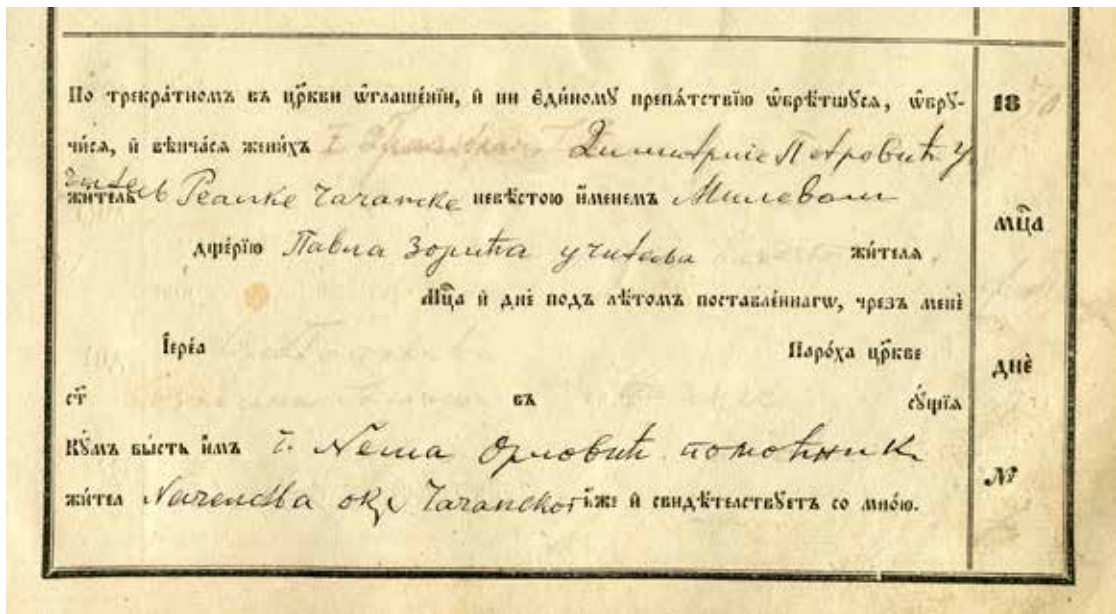 По трекра́тномъ въ цр҃кви ѡ҆глаше́нїи, и҆ ни є҆ди́ному препѧ́тствїю ѡ҆брѣ́тшуся, ѡ҆бру- 18
чи́сѧ, и҆ вѣнча́сѧ жени́хъ Димитрије Петровић у
читељ жи́тель Реалке чачанске невѣ́стою и҆́менемъ Милевом мц҃а
дще́рїю Павла Зорића учитеља жи́телѧ
Мц҃а и҆ днѐ подъ лѣ́томъ поставле́ннагѡ, чрез менѐ
І҆ере́а Паро́ха цр҃кве днѐ
ст҃ въ су́щїѧ
Ку́мъ бы́сть и҆̀мъ г. Неша Орловић помоћник
жи́тел Начелства окр. Чачанског и҆́же и҆ свидѣ́телствуетъ со мно́ю. №